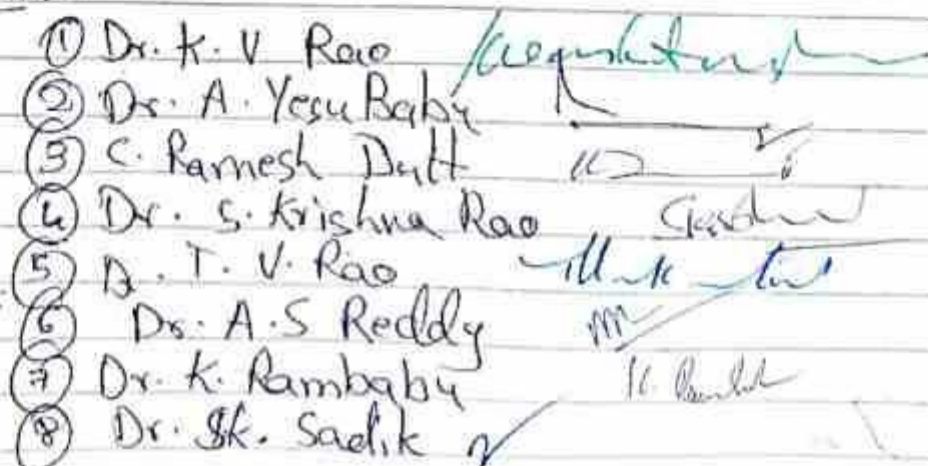 1 Dr. K. V Rao
2 Dr. A. Yesu Babu
3 C. Ramesh Dutt
4 Dr. S. Krishna Rao
5 Dr. T. V. Rao
6 Dr. A.S Reddy
7 Dr. K. Rambabu
8 Dr. Sk. Sadik